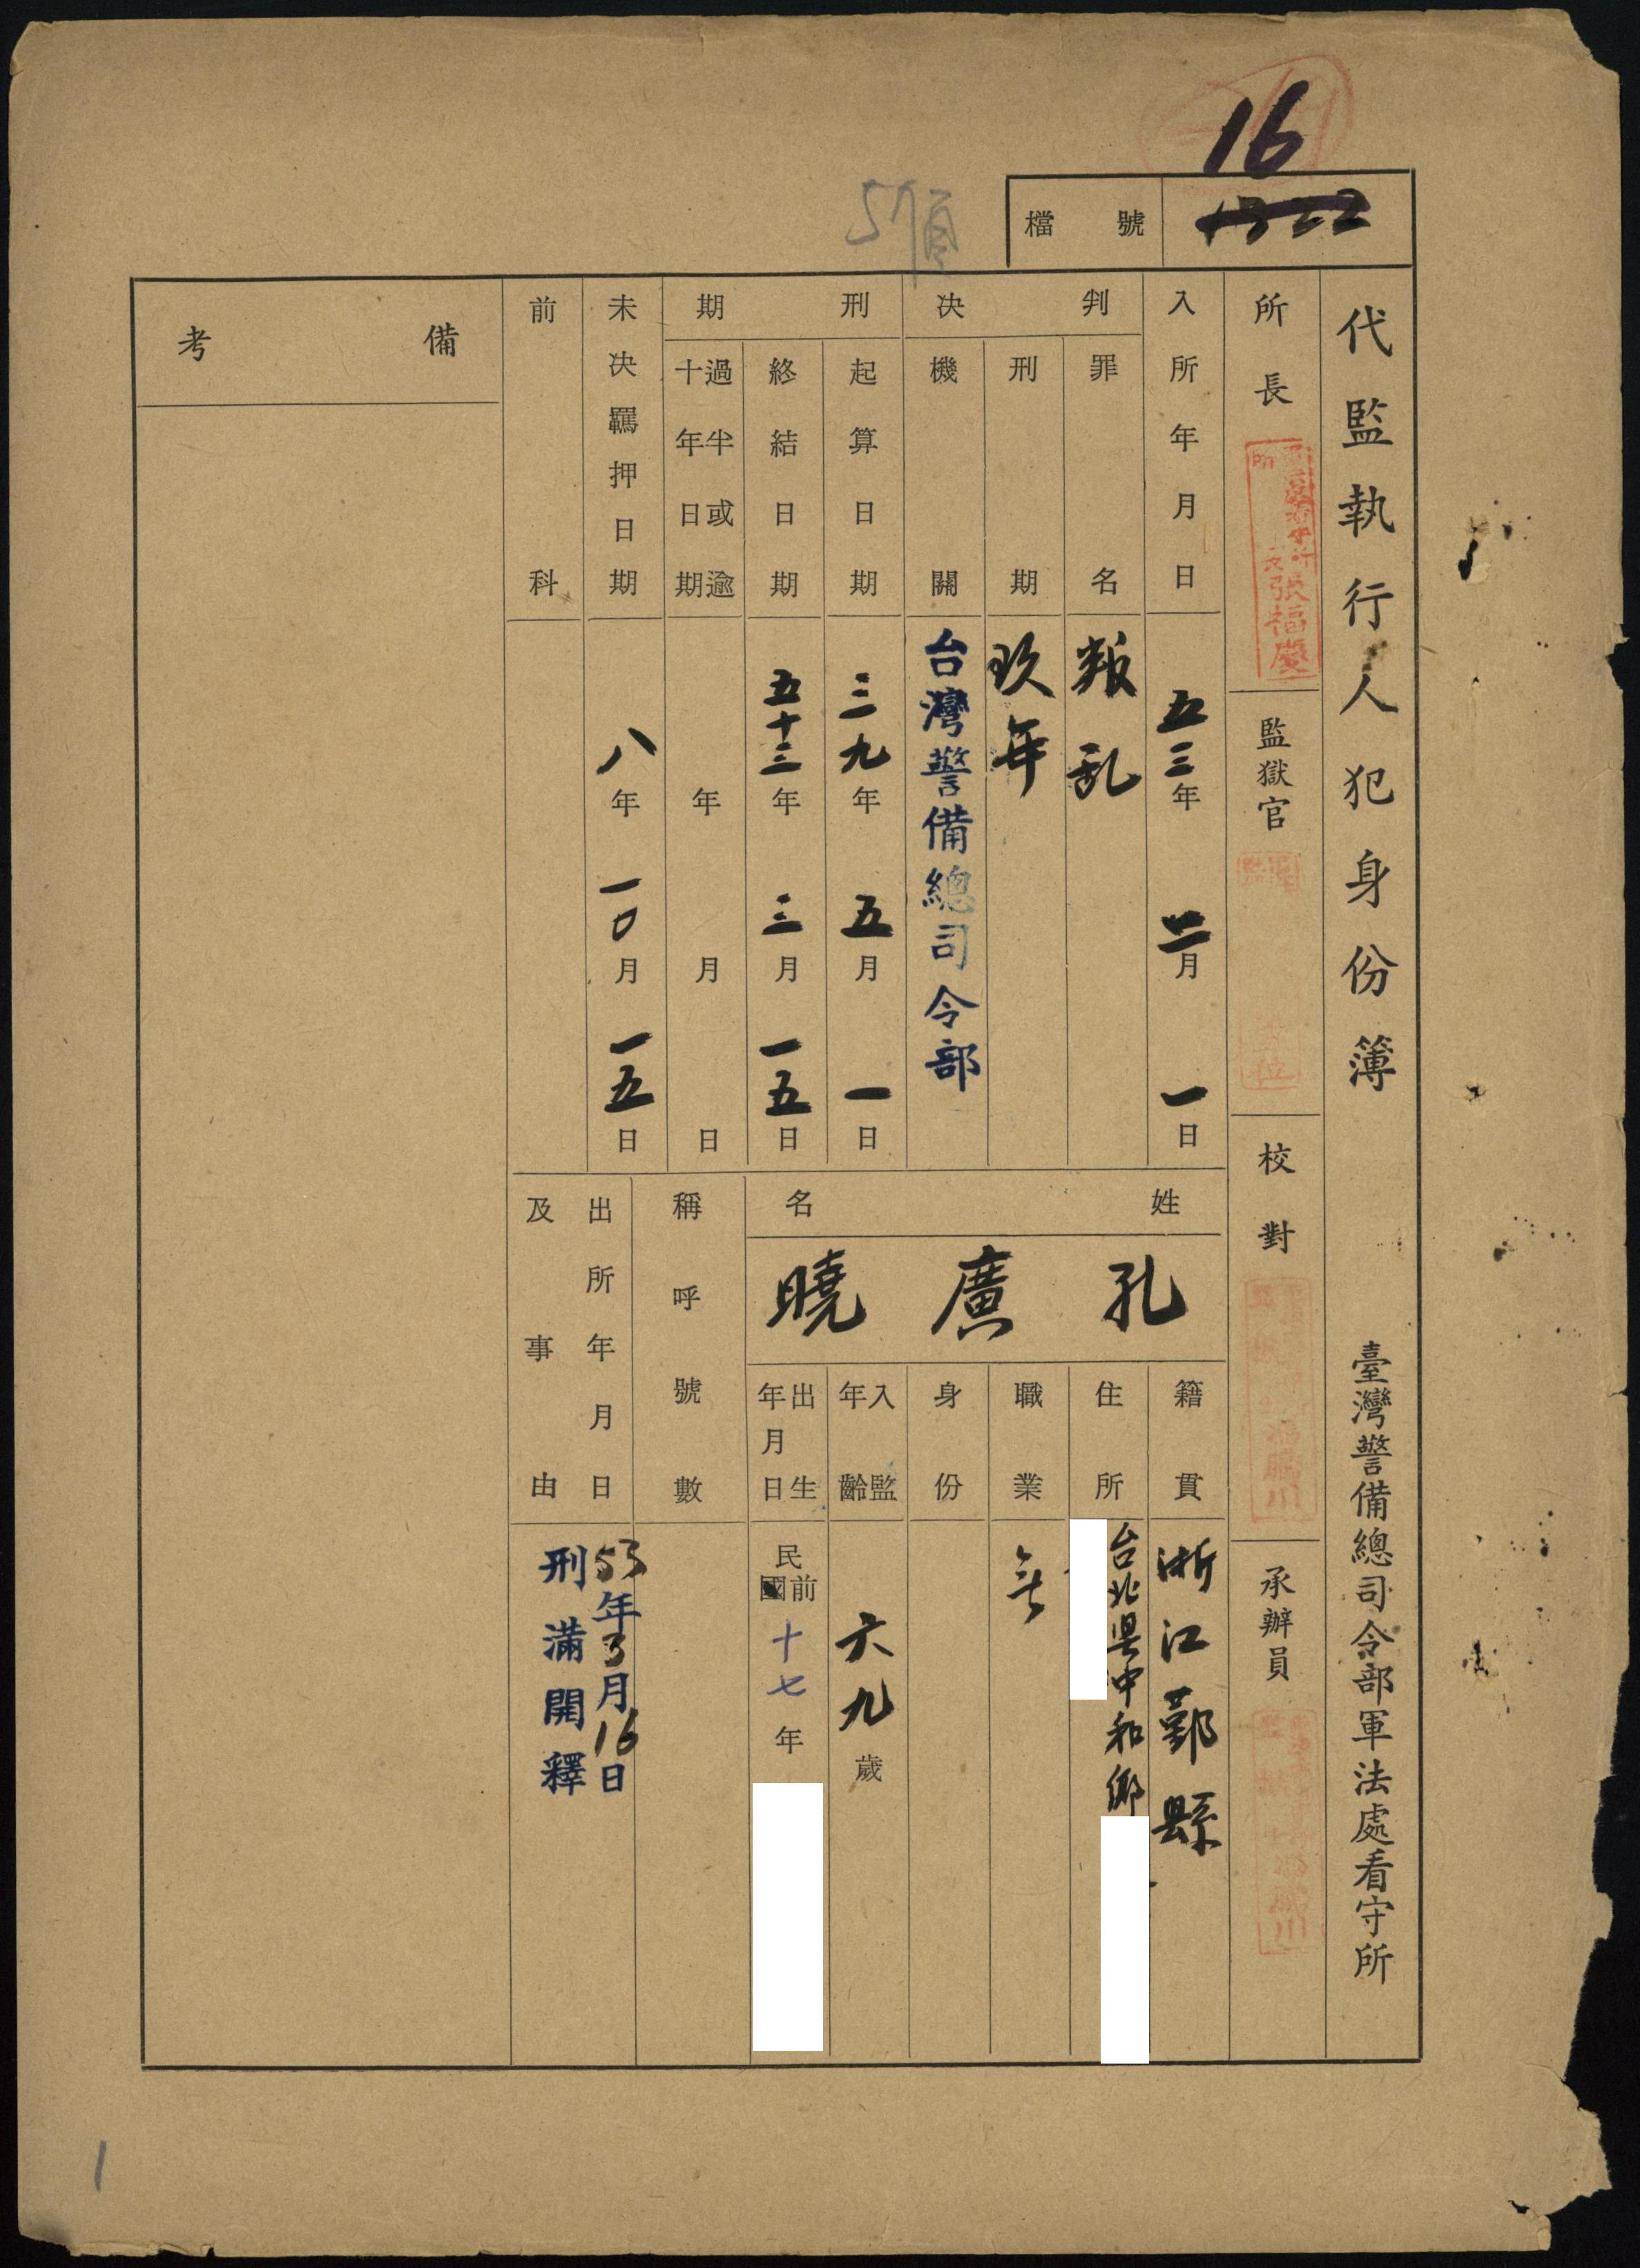 16
5頂
檔號
1322
代監執行人犯身份簿
臺灣警備總司令部軍法處看守所
所長
張福慶
監獄官
校對
承辦員
入所年月日
五三年二月一日
判決
罪名
叛乱
刑期
玖年
機關
台灣警備總司令部
刑期
起算日期
三九年五月一日
終結日期
五十三年三月一五日
過半或逾十年日期
年月日
未決羈押日期
八年一0月一五日
前科
備考
姓名
孔廣曉
籍貫
浙江鄞縣
住所
台北县中和鄉
職業
无
身份
入監年齡
六九歲
出生年月日
民國前十七年
稱呼號數
出所年月日及事由
53年3月16日
刑滿開釋
1